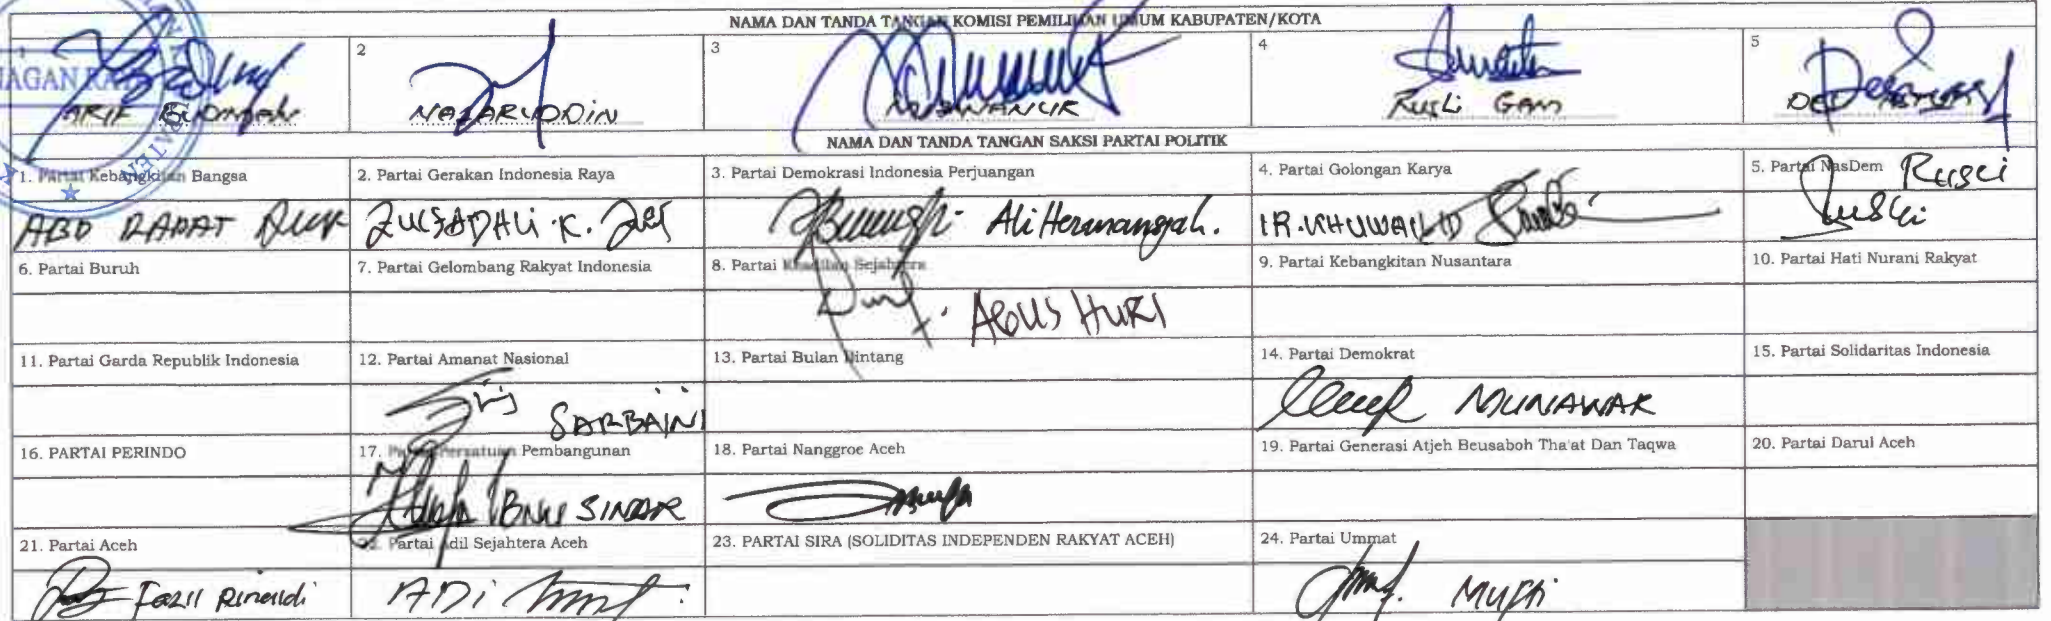 NAMA DAN TANDA TANGAN KOMISI PEMILIHAN UMUM KABUPATEN/KOTA
1 2 3 4 5
AGAN RA
ARIF NAZARUDDIN RUSLI GAM
NAMA DAN TANDA TANGAN SAKSI PARTAI POLITIK
1. Partai Kebangkitan Bangsa 2. Partai Gerakan Indonesia Raya 3. Partai Demokrasi Indonesia Perjuangan 4. Partai Golongan Karya 5. Partai NasDem Rusli
ABD RAPAT ZULFADHLI K. Ali Hermansyah. IR. KHUWAILID Rusli
6. Partai Buruh 7. Partai Gelombang Rakyat Indonesia 8. Partai Keadilan Sejahtera 9. Partai Kebangkitan Nusantara 10. Partai Hati Nurani Rakyat
AGUS HURI
11. Partai Garda Republik Indonesia 12. Partai Amanat Nasional 13. Partai Bulan Bintang 14. Partai Demokrat 15. Partai Solidaritas Indonesia
SARBAINI MUNAWAR
16. PARTAI PERINDO 17. Partai Persatuan Pembangunan 18. Partai Nanggroe Aceh 19. Partai Generasi Atjeh Beusaboh Tha'at Dan Taqwa 20. Partai Darul Aceh
IBNU SINAR
21. Partai Aceh 22. Partai Adil Sejahtera Aceh 23. PARTAI SIRA (SOLIDITAS INDEPENDEN RAKYAT ACEH) 24. Partai Ummat
Fazil Rinaldi ADI Mufti